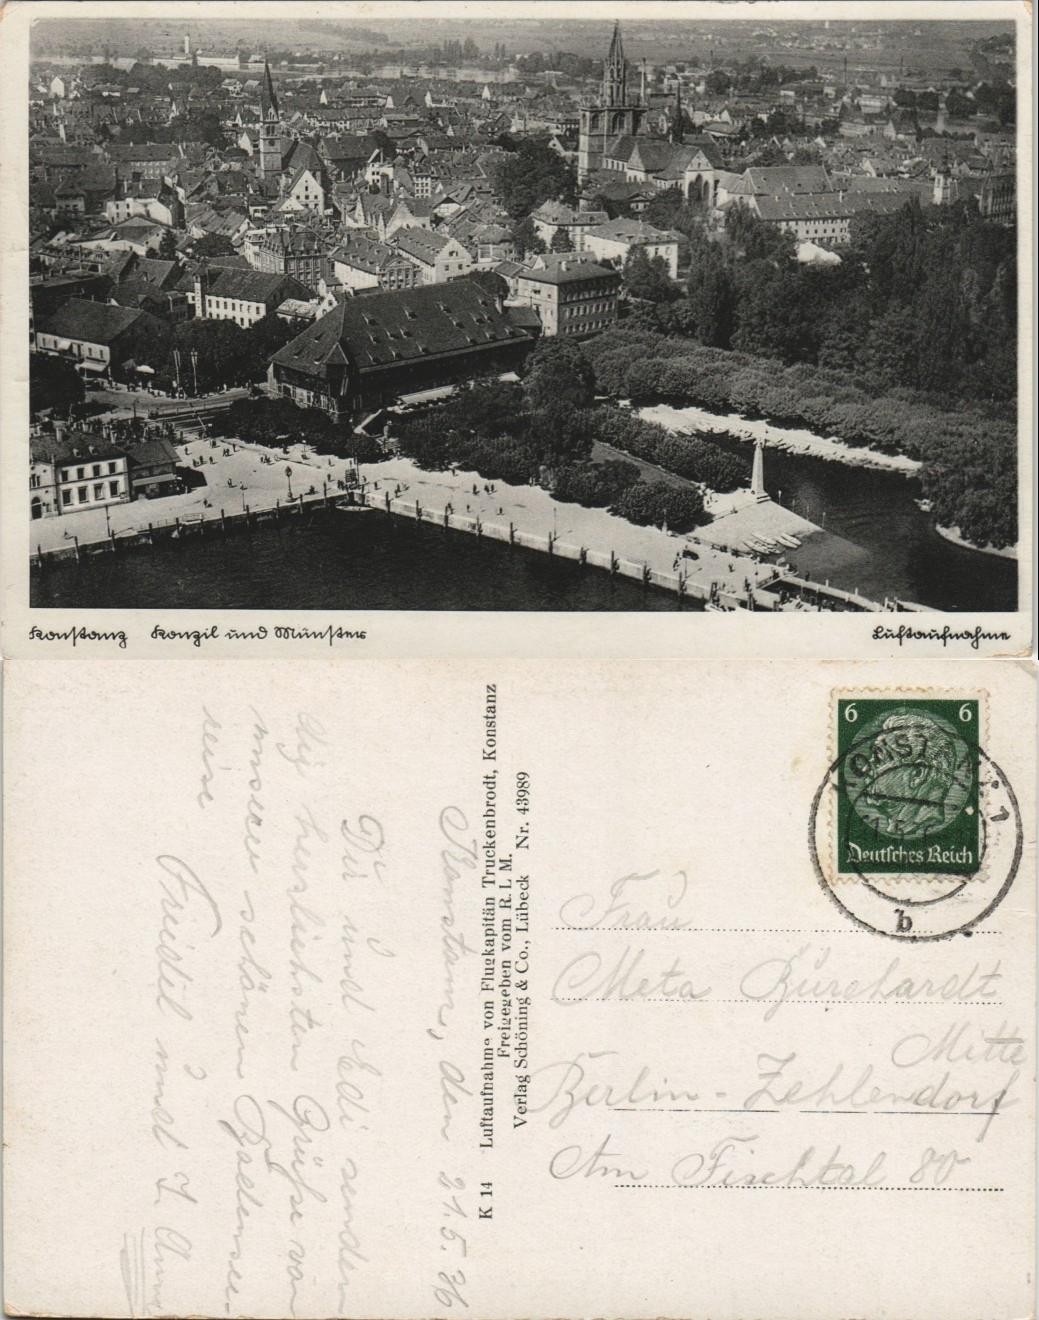 Konstanz Konzil und Münster
Luftaufnahme
6 6
Deutsches Reich
KONSTANZ 1
b
K 14 Luftaufnahme von Flugkapitän Truckenbrodt, Konstanz
Freigegeben vom R. L. M.
Verlag Schöning & Co., Lübeck Nr. 43989
Konstanz, den 21.5.36
Dir und Edi senden
die herzlichsten Grüße von
unserer schönen Bodensee-
reise
Friedel und
Frau
Meta Burchardt
Berlin-Zehlendorf Mitte
Am Fischtal 80